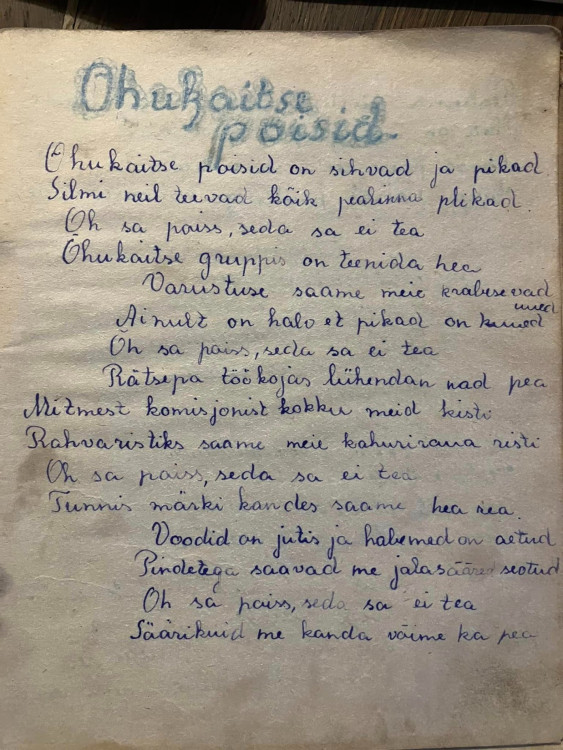 Õhukaitse
poisid.
Õhukaitse poisid on sihvad ja pikad.
Silmi neil teevad kõik pealinna plikad.
Oh sa poiss, seda sa ei tea
Õhukaitse gruppis on teenida hea
Varustuse saame meie krabisevad
uued
Ainult on halv et pikad on kuued
Oh sa poiss, seda sa ei tea
Rätsepa töökojas lühendan nad pea
Mitmest komisjonist kokku meid kisti
Rahvaristiks saame meie kahuriraua risti
Oh sa poiss, seda sa ei tea
Tunnis märki kandes saame hea rea.
Voodid on jutis ja habemed on aetud
Pindetega saavad me jalasääred seotud
Oh sa poiss, seda sa ei tea
Säärikuid me kanda võime ka pea